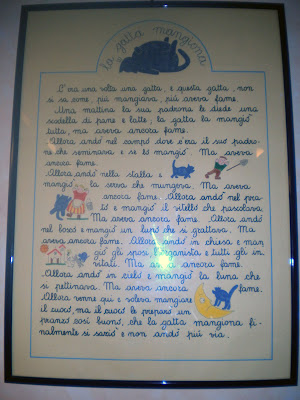 la gatta mangiona
C'era una volta una gatta, e questa gatta, non
si sa come, più mangiava, più aveva fame.
Una mattina la sua padrona le diede una
scodella di pane e latte, la gatta la mangiò
tutta, ma aveva ancora fame.
Allora andò nel campo dove c'era il suo padro=
ne che seminava, e se lo mangiò. Ma aveva
ancora fame.
Allora andò nella stalla e
mangiò la serva che mungeva. Ma aveva
ancora fame. Allora andò nel pra=
to e mangiò il vitello che pascolava.
Ma aveva ancora fame. Allora andò
nel bosco e mangiò un lupo che si grattava. Ma
aveva ancora fame. Allora andò in chiesa e man
giò gli sposi, l'organista e tutti gli in
vitati. Ma aveva ancora fame.
Allora andò in cielo e mangiò la luna che
si pettinava. Ma aveva ancora fame.
Allora venne qui e voleva mangiare
il cuoco, ma il cuoco le preparò un
pranzo così buono, che la gatta mangiona fi=
nalmente si saziò e non andò più via.